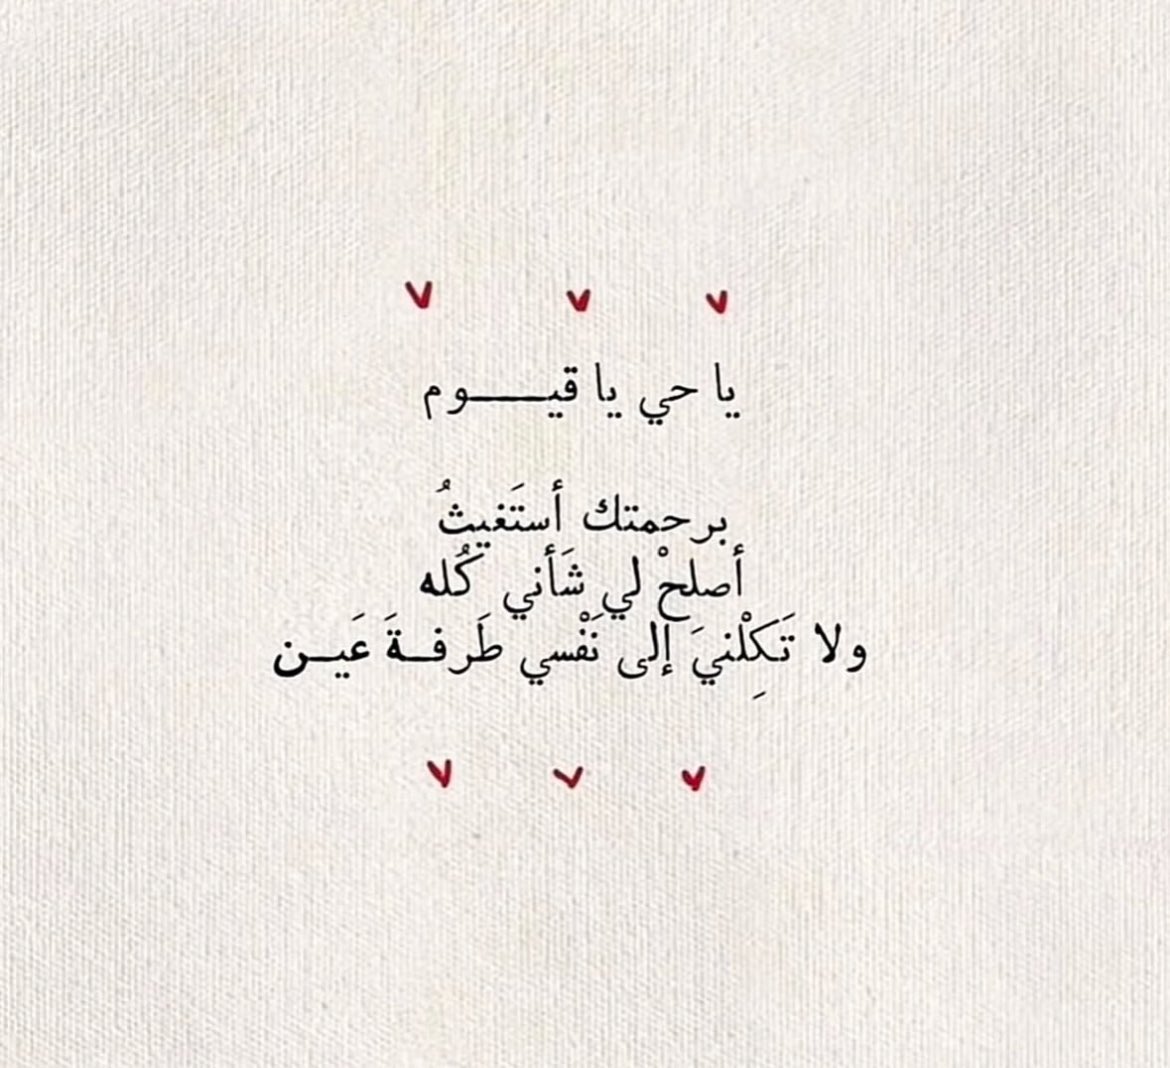 يا حي يا قيـــــوم
برحمتك أستَغيثُ
أصلحْ لي شَأني كُله
ولا تَكِلْنيَ إلى نَفْسي طَرفــةَ عَيــن